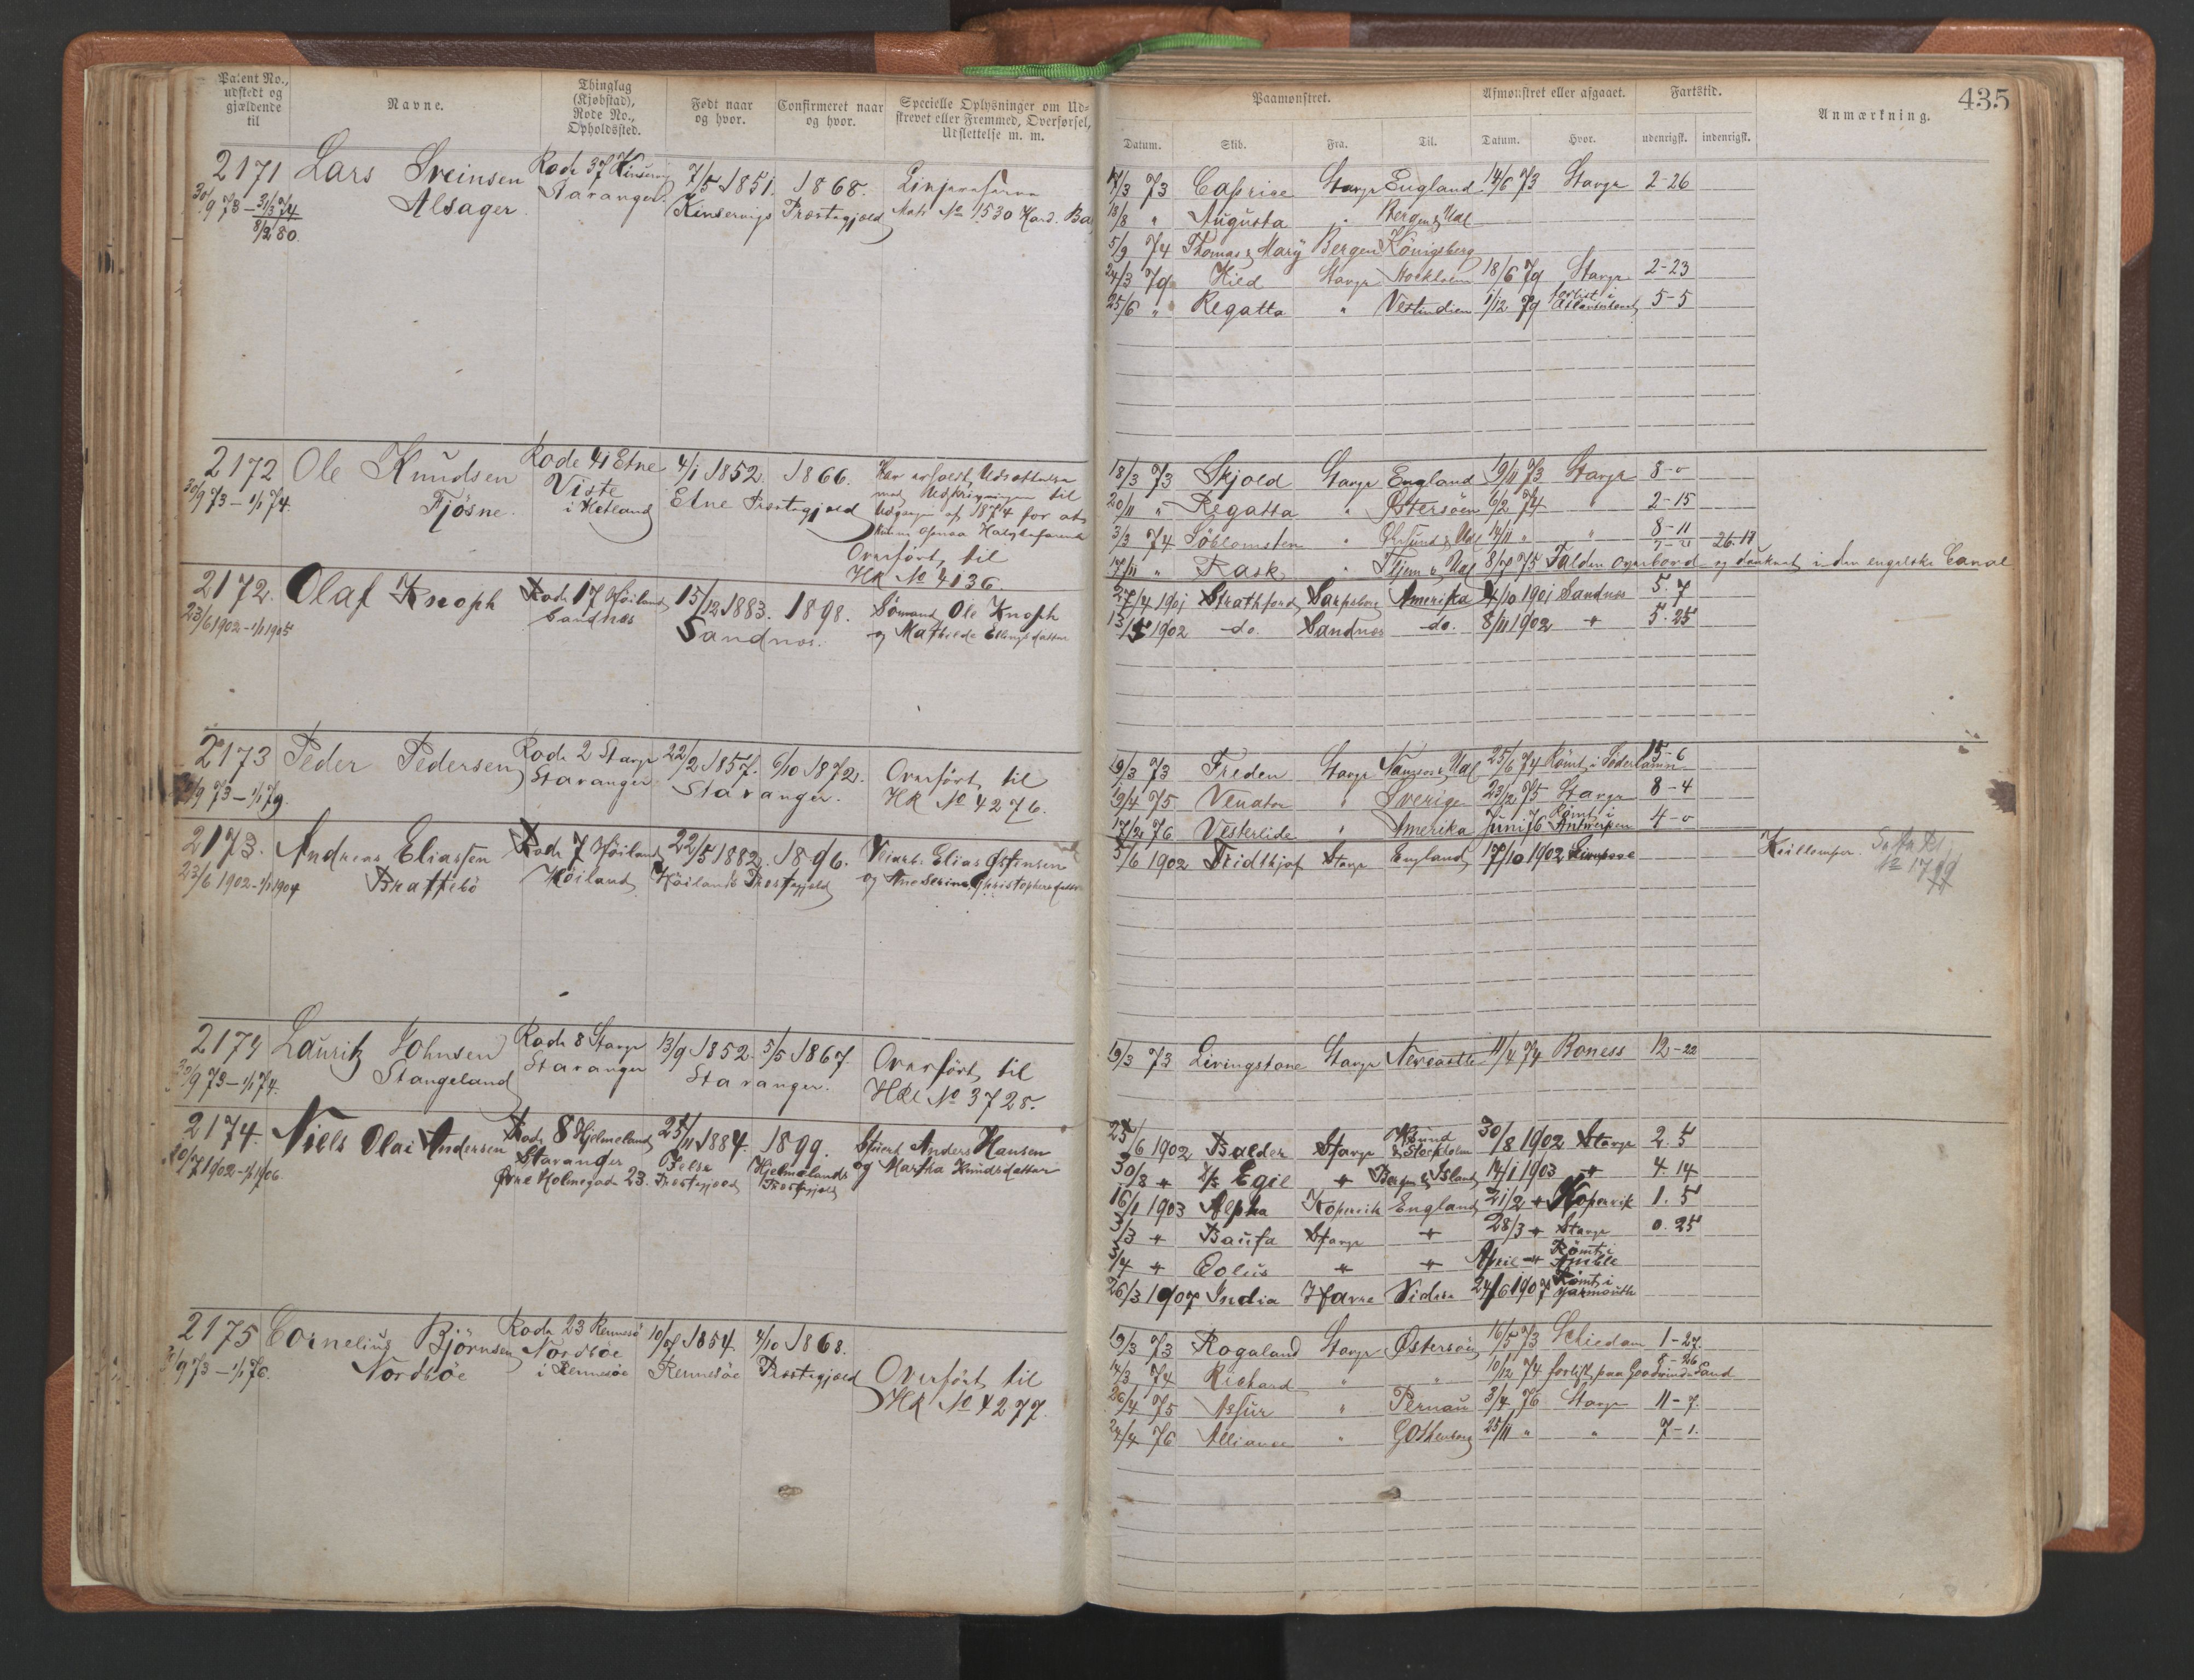 435
Patent No., udstedt og gjældende til
Navne.
Thinglag (Kjøbstad), Rode No., Opholdssted.
Født naar og hvor.
Confirmeret naar og hvor.
Specielle Oplysninger om Udskrevet eller Fremmed, Overførsel, Udslettelse m. m.
Paamønstret.
Afmønstret eller afgaaet.
Fartstid.
Anmærkning.
Datum. Skib. Fra. Til. Datum. Hvor. udenrigsk. indenrigsk.
2171 Lars Sveinsen Rode 37 Kinservig 7/5 1851. 1868.
Alsager. Stavanger. Kinservigs Præstegjæld No 1530
30/9 73 – 31/3 74
8/2 80.
17/3 73 Caprice Stavgr England 14/6 73 Stavgr 2-26
18/8 " Augusta " Bergen & Udl
5/9 74 Thomas & Mary Bergen Königsberg
24/3 79 Hild Stavgr Stockholm 18/6 79 Stavgr 2-23
25/6 " Regatta " Vestindien 1/12 79 forlist i Atlanterhavet 5-5
2172 Ole Knudsen Rode 41 Etne 4/1 1852. 1866.
Fjösne. Viste i Hetland Etne Præstegjæld
30/9 73 – 1/1 74.
Overført til
HR No 4136
18/3 73 Skjold Stavgr England 19/11 73 Stavgr 8-0
20/11 " Regatta " Østersøen 6/2 74 " 2-15
3/3 74 Söblomsten " Øresund & Udl 14/11 " " 8-11 26.17
17/11 " Rask " Tjem & Udl 8/7 75 Falden overbord og druknet i den engelske Canal
2172. Olaf Knoph Rode 17 Høiland 15/12 1883. 1898. Sømand Ole Knoph
23/6 1902 – 1/1 1905 Sandnæs Sandnæs. og Mathilde Ellingsdatter
27/4 1901 Strathford Sarpsborg Amerika 4/10 1901 Sandnæs 5.7
13/5 1902 do. Sandnæs do. 8/11 1902 " 5.25
2173 Peder Pedersen Rode 2 Stavgr 22/2 1857. 6/10 1872. Overført til
/9 73 – 1/1 79. Stavanger Stavanger. HR No 4276.
19/3 73 Freden Stavgr & Udl 25/6 74 Rømt i Söderhamn 15-6
19/4 75 Venator " Sverige 23/12 75 Stavgr 8-4
17/2 76 Vesterlide " Amerika Juni 76 Rømt i Antwerpen 4-0
2173. Andreas Eliassen Rode 7 Høiland 22/5 1882. 1896. Veiarb. Elias Østensen
23/6 1902 – 1/1 1904 Brattebö Høiland Høilands Præstegjæld og Ane Serine Christophersdatter
5/6 1902 Fridthjof Stavgr England 17/10 1902 Liverpool Kullemper.
2174 Lauritz Johnsen Rode 8 Stavgr 13/9 1852. 5/5 1867. Overført til
30/9 73 – 1/1 74. Stangeland Stavanger Stavanger. HRl No 3728.
19/3 73 Livingstone Stavgr Newcastle 11/4 74 Boness 12-22
2174. Niels Olai Andersen Rode 8 Hjelmeland 25/11 1884. 1899. Stuert Anders Hansen
10/7 1902 – 1/1 1906 Stavanger Jelse Præstegjæld Hjelmelands Præstegjæld og Martha Knudsdatter
Øvre Holmegade 23.
25/6 1902 Balder Stavgr & Stockholm 30/8 1902 Stavgr 2.5
30/8 " D/S Egil " Bergen & Island 14/1 1903 " 4.14
16/1 1903 Alpha Kopervik England 21/2 " Kopervik 1.5
3/3 " Baufa Stavgr " 28/3 " Stavgr 0.25
3/4 " Eolus " " April " Rømt i Amble
26/3 1907 India Havre Vidre 24/6 1907 Rømt i Yarmouth
2175 Cornelius Björnsen Rode 23 Rennesø 10/5 1854. 4/10 1868.
30/9 73 – 1/1 76. Nordböe Nordböe i Rennesöe Rennesöe Præstegjæld Overført til
HR No 4277.
19/3 73 Rogaland Stavgr Østersøen 16/5 73 Schiedam 1-27.
14/3 74 Richard " " 10/12 74 forlist paa Goodwind Sand 8-26
26/4 75 Assur " Pernau 3/4 76 Stavgr 11-7.
24/4 76 Alliance " Gothenborg 25/11 " " 7-1.